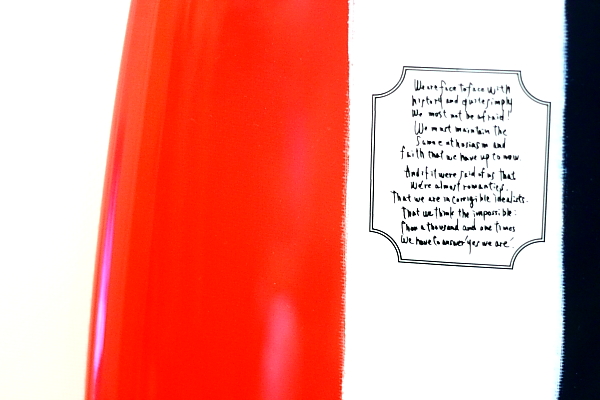 We are face to face with
history and quite simply
We must not be afraid!
We must maintain the
Same enthusiasm and
faith that we have up to now.
And if it were said of us that
We're almost romantics.
That we are incorrigible idealists.
That we think the impossible:
Then a thousand and one times
We have to answer 'yes we are'